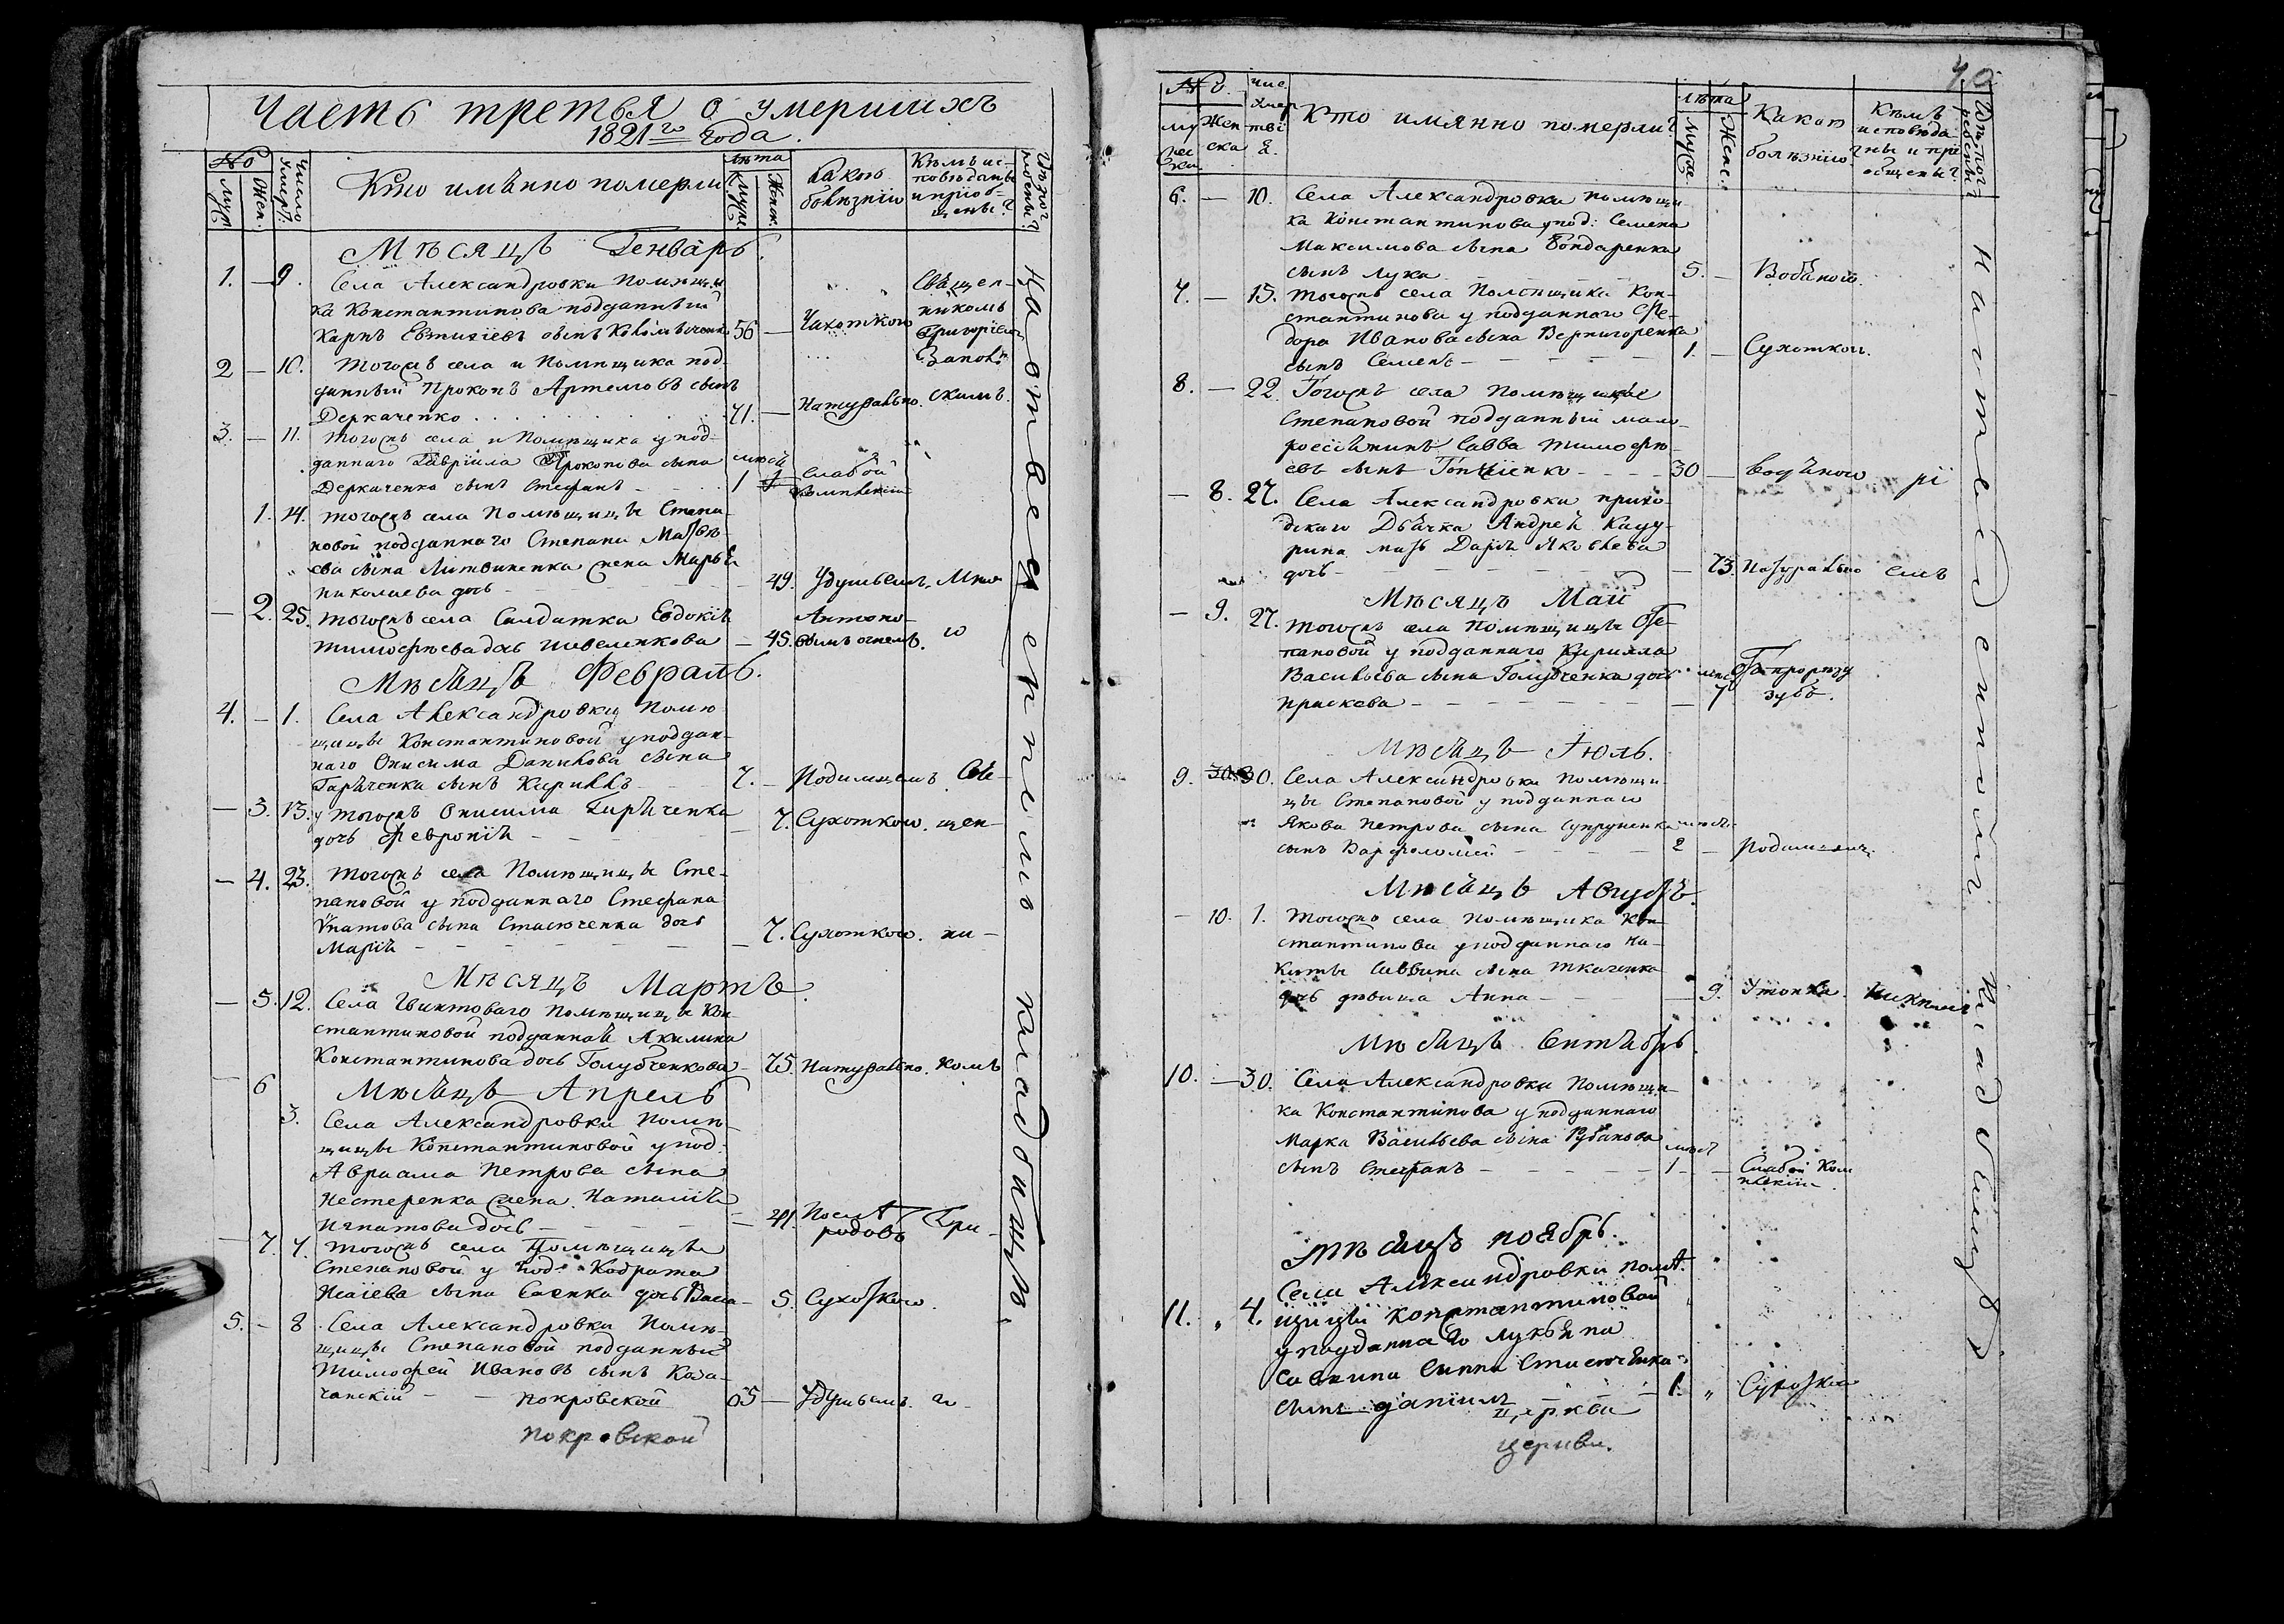 Часть третья о умершихъ
1821го года.
№
Муж.
Жен.
Число умерт.
Кто имѣнно померли
Лѣта
Муж.
Женск.
Какою болѣзнію
Кѣмъ исповѣданы и пріобщены?
Гдѣ погребены?
Мѣсяцъ Генварь.
1. — 9. Села Александровки помѣщи
ка Константинова подданный
Карпъ Евтихіевъ сынъ 56 — Чахоткою
Священ-
никомъ
Григоріемъ
Запол
скимъ.
2 — 10. Тогожъ села и Помѣщика под-
данный Прокопъ Артемовъ сынъ
Деркаченко . . . 71. — Натурально.
3. — 11. Тогожъ села и Помѣщика у под-
даннаго Гавріила Прокопова сына
Деркаченко сынъ Стефанъ — 1 Слабой
1. 14. Тогожъ села Помѣщицы Степа-
новой подданнаго Степана Матвѣ-
ева сына Литвиненка жена Марья
Николаева дочь — 49. Удушьемъ.
— 2. 25. Тогожъ села Салдатка Евдокія
Тимофѣева дочь Шевеленкова — 45. Антоно-
вымъ огнемъ.
Мѣсяцъ Февраль.
4. — 1. Села Александровки Помѣ
щицы Константиновой у поддан-
наго Онисима Данилова сына
Гаряченка сынъ Кириллъ 7. — Родимцемъ Свя-
— 3. 13. у Тогожъ Онисима Гаряченка
дочь Февронія — 7. Сухоткою. щен-
— 4. 23. Тогожъ села Помѣщицы Сте-
пановой у подданнаго Стефана
Игнатова сына Стасюченка дочь
Марія — 7. Сухоткою. ни-
Мѣсяцъ Мартъ.
— 5. 12. Села Гвинтоваго Помѣщицы Кон-
стантиновой подданная Акилина
Константинова дочь Голубченкова — 75. Натурально. комъ
Мѣсяцъ Апрель
— 6 3. Села Александровки Помѣ-
щицы Константиновой у под.
Авраама Петрова сына
Нестеренка жена Наталія
Игнатова дочь — 41. После
родовъ Гри-
— 7. 7. Тогожъ села Помѣщицы
Степановой у под: Кодрата
Исаіева сына Саенка дочь Васса — 5. Сухоткою.
5. — 8 Села Александровки Помѣ-
щицы Степановой подданный
Тимофей Ивановъ сынъ Каза-
чанскій — покровской 65 — Удушьемъ.
покровской
на отведенномъ кладбищѣ
40
№
Мужеска
Женска
Число умертвія.
Кто имянно померли?
лѣта
Муска.
Женс.
Какою болѣзнію
Кѣмъ исповѣданы и пріобщены?
Гдѣ погребены?
6. — 10. Села Александровки помѣщи
ка Константинова у под: Семена
Максимова сына Бондаренка
сынъ Лука 5. — Водяною.
7. — 15. Тогожъ села Помѣщика Кон-
стантинова у подданнаго Фе-
дора Иванова сына Вернигоренка
сынъ Семенъ — 1. — Сухоткою.
8. — 22. Тогожъ села Помѣщицы
Степановой подданный мало-
россіянинъ Савва Тимофѣ-
евъ сынъ — 30 — Водяною рі
— 8. 27. Села Александровки прихо-
дскаго Дьячка Андрея Кацу-
рина мать Дарія Яковлева
дочь — 73. Натурально емъ
Мѣсяцъ Май
— 9. 27. Тогожъ села Помѣщицы Сте-
пановой у подданнаго Кирилла
Васильева сына Голубченка дочь
Праскева — 7 На прорѣзу
зубъ.
Мѣсяцъ Іюль.
9. 30. Села Александровки Помѣщи-
цы Степановой у подданнаго
Якова Петрова сына Супруненка
сынъ Варфоломей — 2 — Родимцемъ.
Мѣсяцъ Августъ.
— 10. 1. Тогожъ села Помѣщика Кон-
стантинова у подданнаго Ни-
киты Саввина сына Ткаченка
дочь дѣвица Анна — 9. Утонла.
Мѣсяцъ Сентябрь.
10. — 30. Села Александровки Помѣщи-
ка Константинова у подданнаго
Марка Васильева сына Рубанова
сынъ Стефанъ — 1 — Слабой Ком
плекціи.
Мѣсяцъ ноябрь.
Села Александровки помѣ-
11. „ 4. щицы Константиновой
у подданнаго Лукьяна
Савина сынна Стасюченка
сынъ Даніилъ — 1. „ Сухоткою
церкви
церкви.
на отведенномъ кладбищѣ